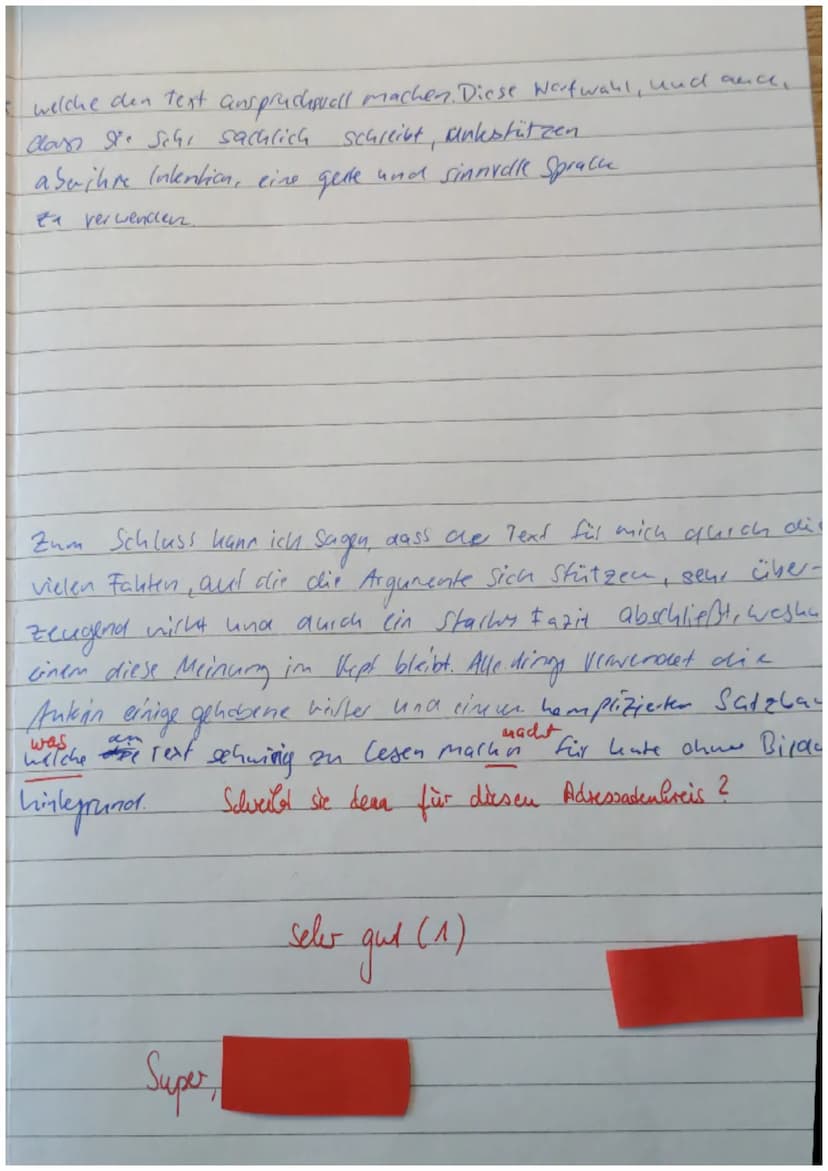 welche den Text anspruchsvoll machen. Diese Wortwahl, und auch,
dass sie sehr sachlich schreibt, unterstützen
aber ihre Intention, eine gute und sinnvolle Sprache
zu verwenden.
Zum Schluss kann ich sagen, dass der Text für mich durch die
vielen Fakten, auf die die Argumente sich stützen, sehr über-
zeugend wirkt und durch ein starkes Fazit abschließt, wesha
einem diese Meinung im Kopf bleibt. Allerdings verwendet die
Autorin einige gehobene Wörter und einen komplizierten Satzbau
was macht
welche den Text schwirig zu lesen machen für Leute ohne Bildu
hintergrund. Schreibt sie denn für diesen Adressadenkreis?
sehr gut (1)
Super,